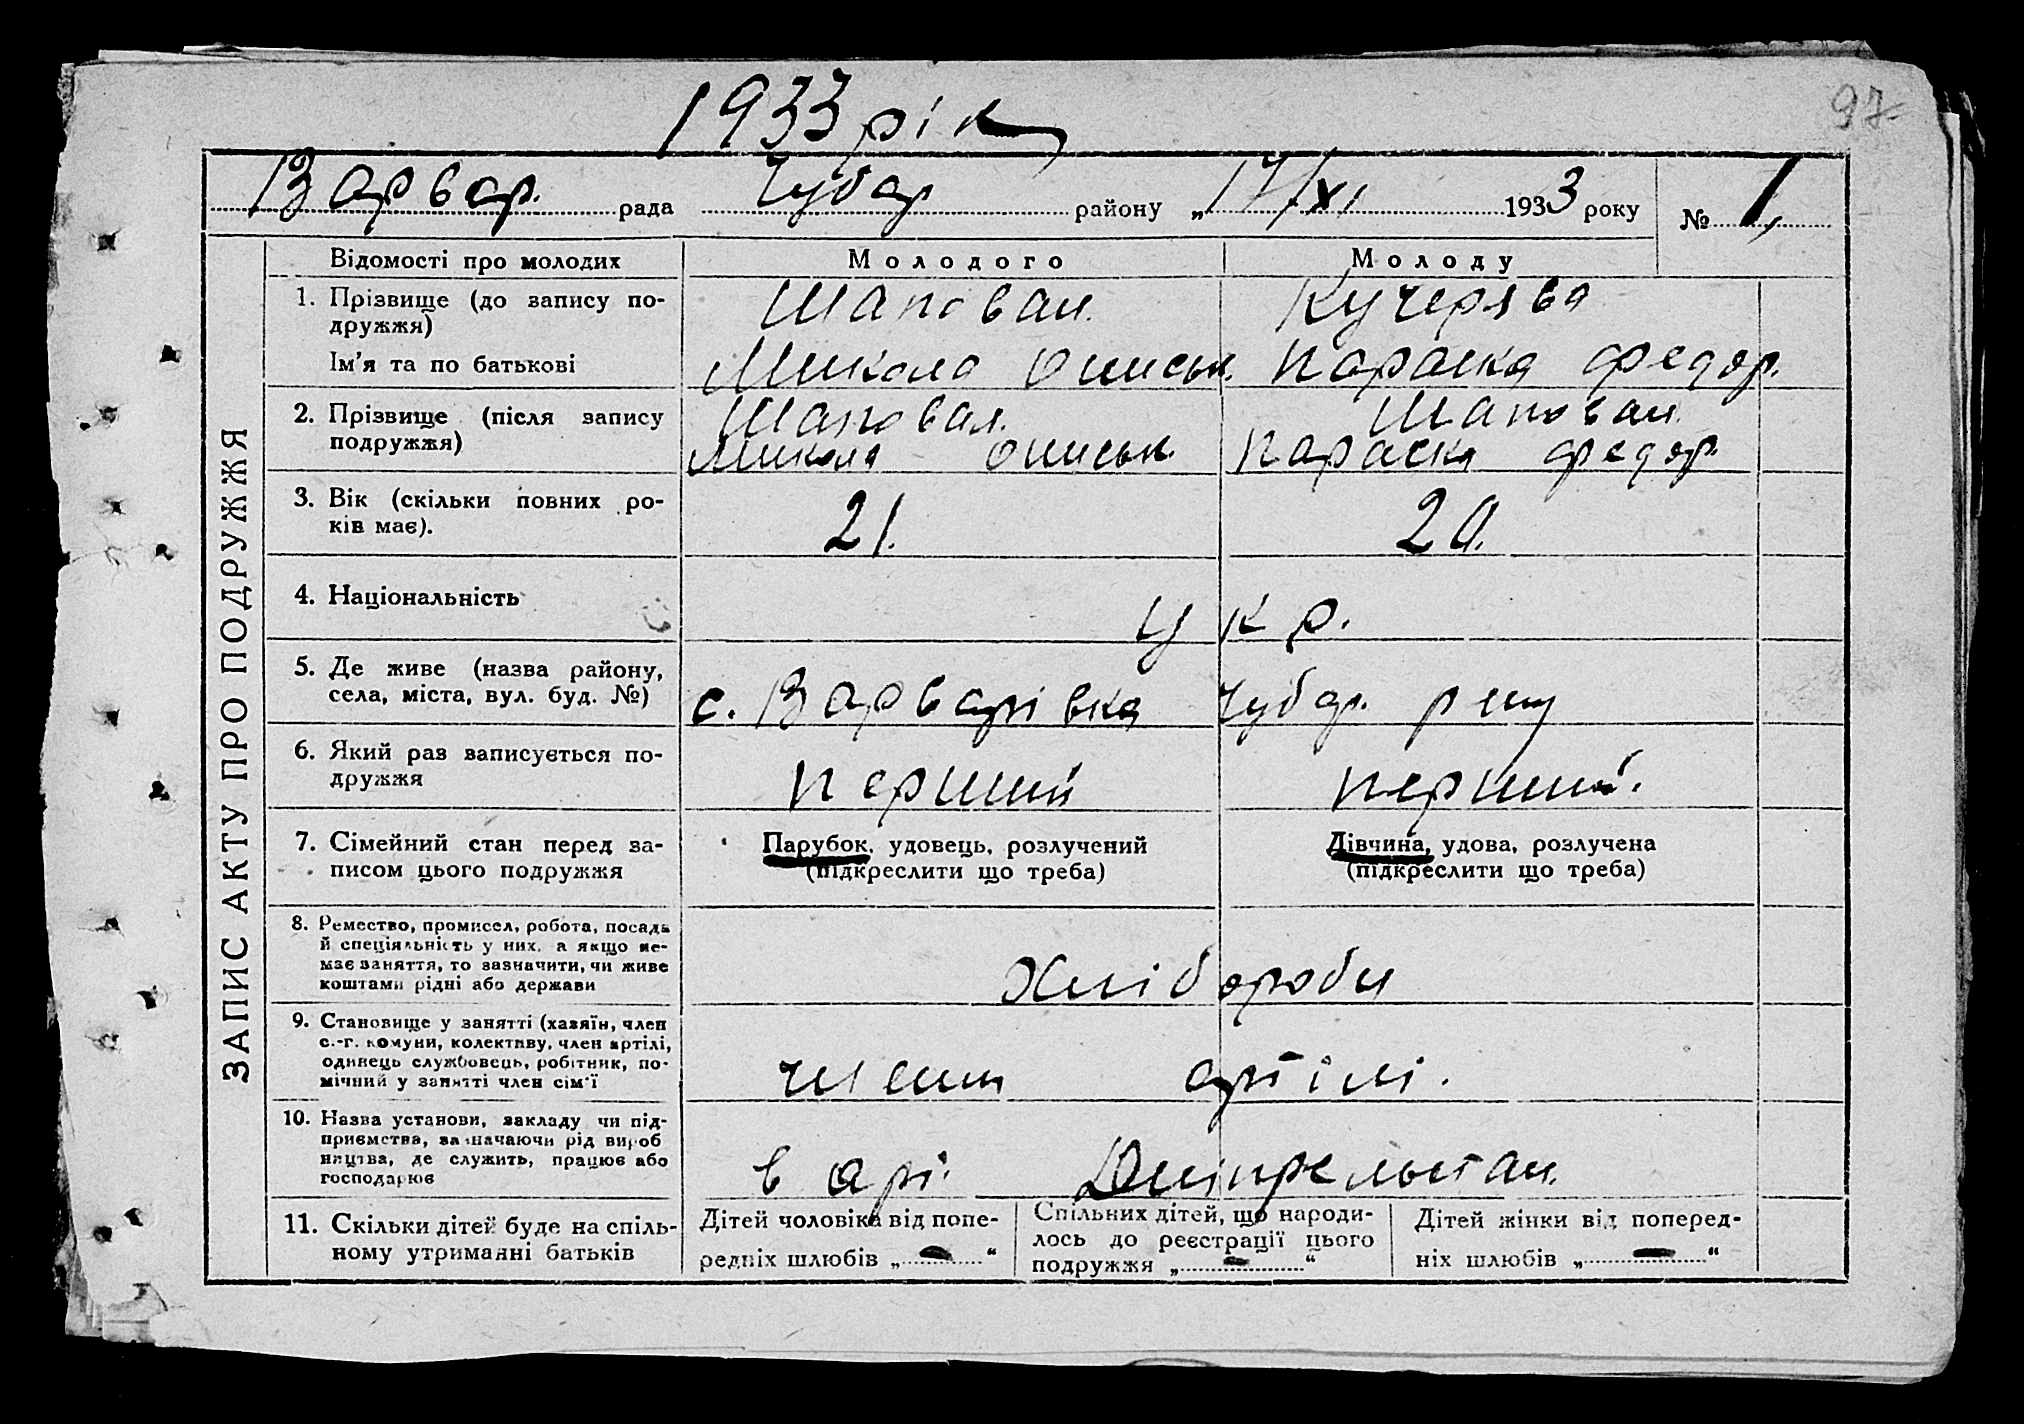 97
1933 рік
Варвар. рада Чубар району „17/XI 1933 року № 1,
ЗАПИС АКТУ ПРО ПОДРУЖЖЯ
Відомості про молодих Молодого Молоду
1. Прізвище (до запису по- Шаповал. Кучерява
дружжя)
Ім'я та по батькові Микола Ониськ. Параска Федор.
2. Прізвище (після запису Шаповал. Шаповал.
подружжя) Микола Ониськ. Параска Федор.
3. Вік (скільки повних ро- 21. 20.
ків має).
4. Національність укр.
5. Де живе (назва району,
села, міста, вул. буд. №) с. Варварівка Чубар. р-ну
6. Який раз записується по- перший перший.
дружжя
7. Сімейний стан перед за- Парубок, удовець, розлучений Дівчина, удова, розлучена
писом цього подружжя (підкреслити що треба) (підкреслити що треба)
8. Ремество, промисел, робота, посада
й спеціяльність у них, а якщо не-
має заняття, то зазначити, чи живе Хлібороби
коштами рідні або держави
9. Становище у занятті (хазяїн, член
с.-г. комуни, колективу, член артілі,
одинець службовець, робітник, по- член артілі.
мічний у занятті член сім'ї
10. Назва установи, закладу чи під-
приємства, зазначаючи рід вироб
ництва, де служить, працює або в арт. Дніпрельстан.
господарює
11. Скільки дітей буде на спіль- Дітей чоловіка від попе- Спільних дітей, що народи- Дітей жінки від поперед-
ному утриманні батьків редніх шлюбів „ — “ лось до реєстрації цього ніх шлюбів „ — “
подружжя „ — “